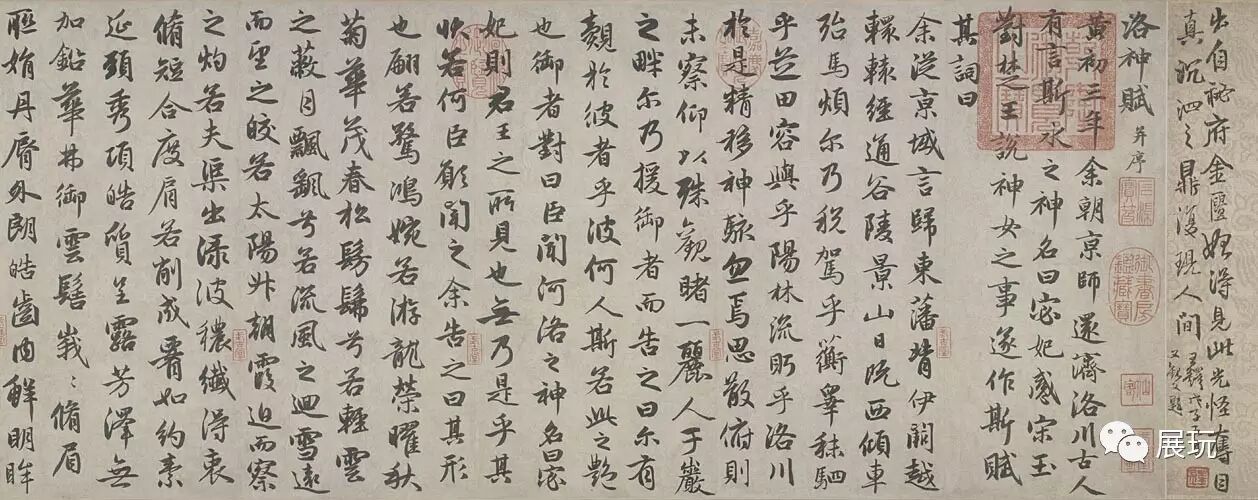 出自秘府金匱始得見此光怪奪目
真沉泗之鼎復現人间
王鐸戊子
洛神賦 并序
黃初三年余朝京師還濟洛川古人
有言斯水之神名曰宓妃感宋玉
對楚王說神女之事遂作斯賦
其詞曰
余從京域言歸東藩背伊闕越
轘轅經通谷陵景山日既西傾車
殆馬煩尔乃稅駕乎蘅皋秣駟
乎芝田容與乎陽林流眄乎洛川
於是精移神駭忽焉思散俯則
未察仰以殊觀睹一麗人于巖
之畔尔乃援御者而告之曰尔有
覿於彼者乎彼何人斯若此之艷
也御者對曰臣聞河洛之神名曰宓
妃則君王之所見也無乃是乎其
狀若何臣願聞之余告之曰其形
也翩若驚鴻婉若游龍榮曜秋
菊華茂春松髣髴兮若輕雲
之蔽月飄飖兮若流風之迴雪遠
而望之皎若太陽升朝霞迫而察
之灼若夫渠出淥波穠纖得衷
脩短合度肩若削成腰如約素
延頸秀項皓質呈露芳澤無
加鉛華弗御雲髻峩〻脩眉
聯娟丹脣外朗皓齒內鮮明眸
展玩